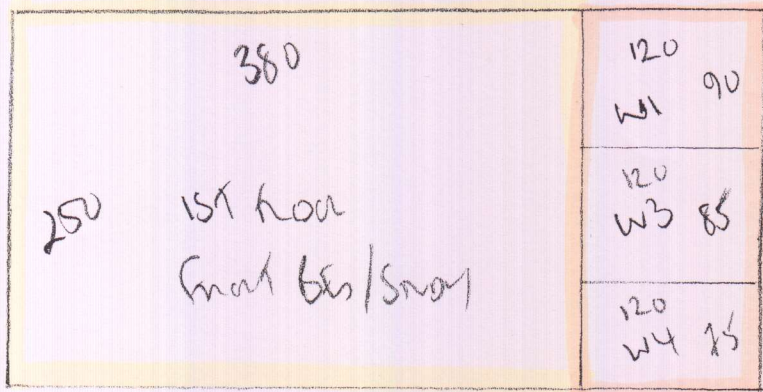 380
250
1ST Floor
Front Bed/Study
120
W1 90
120
W3 85
120
W4 75